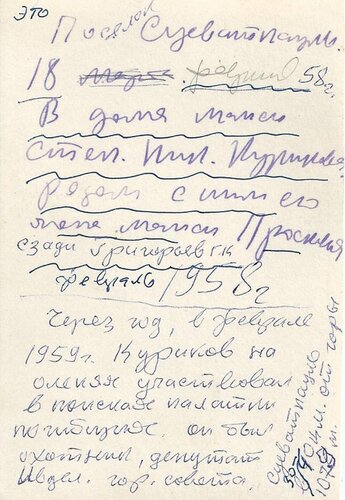 это
Поселок Суеватпауль.
18 марта. февраля 58г.
В доме манси
Степ. Ник. Курикова
рядом с ним его
жена манси Прасковья
сзади Григорьев Г.К
февраль 1958г
Через год, в феврале
1959г. Куриков на
оленях участвовал
в поисках палатки
погибших. он был
охотник, депутат
Ивдел. гор. совета.
Суеватпауль
км. от горы
1079 м.